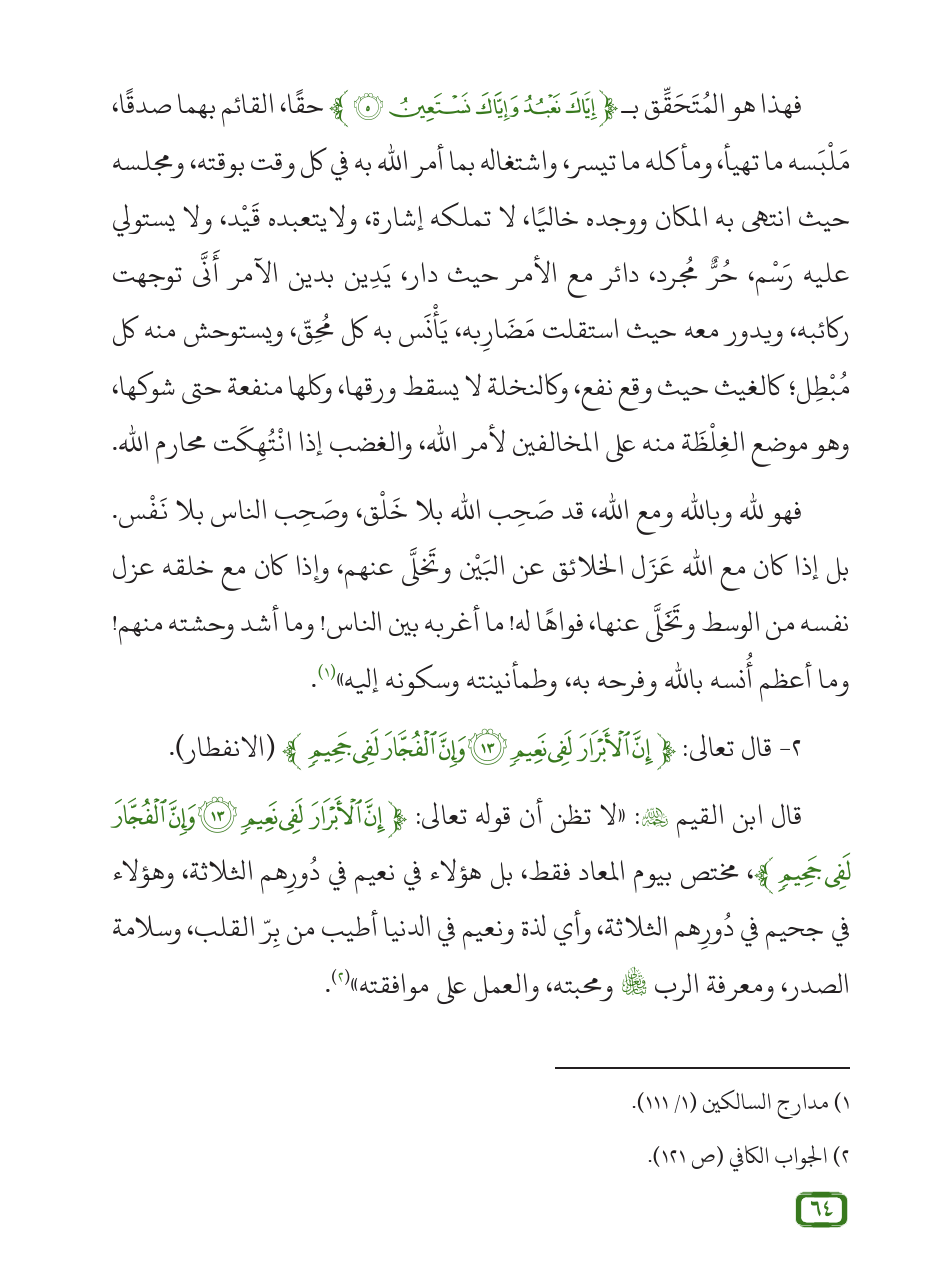 فهذا هو المُتَحَقِّق بـ ﴿ إِيَّاكَ نَعْبُدُ وَإِيَّاكَ نَسْتَعِينُ ٥ ﴾ حقًا، القائم بهما صدقًا،
مَلْبَسه ما تهيأ، ومأكله ما تيسر، واشتغاله بما أمر الله به في كل وقت بوقته، ومجلسه
حيث انتهى به المكان ووجده خاليًا، لا تملكه إشارة، ولا يتعبده قَيْد، ولا يستولي
عليه رَسْم، حُرٌّ مُجرد، دائر مع الأمر حيث دار، يَدِين بدين الآمر أَنَّى توجهت
ركائبه، ويدور معه حيث استقلت مَضَارِبه، يَأْنَس به كل مُحِقّ، ويستوحش منه كل
مُبْطِل؛ كالغيث حيث وقع نفع، وكالنخلة لا يسقط ورقها، وكلها منفعة حتى شوكها،
وهو موضع الغِلْظَة منه على المخالفين لأمر الله، والغضب إذا انْتُهِكَت محارم الله.
فهو لله وبالله ومع الله، قد صَحِب الله بلا خَلْق، وصَحِب الناس بلا نَفْس.
بل إذا كان مع الله عَزَل الخلائق عن البَيْن وتَخلَّى عنهم، وإذا كان مع خلقه عزل
نفسه من الوسط وتَخَلَّى عنها، فواهًا له! ما أغربه بين الناس! وما أشد وحشته منهم!
وما أعظم أُنسه بالله وفرحه به، وطمأنينته وسكونه إليه»(١).
٢- قال تعالى: ﴿ إِنَّ ٱلْأَبْرَارَ لَفِى نَعِيمٍ ١٣ وَإِنَّ ٱلْفُجَّارَ لَفِى جَحِيمٍ ﴾ (الانفطار).
قال ابن القيم رحمه الله: «لا تظن أن قوله تعالى: ﴿ إِنَّ ٱلْأَبْرَارَ لَفِى نَعِيمٍ ١٣ وَإِنَّ ٱلْفُجَّارَ
لَفِى جَحِيمٍ ﴾، مختص بيوم المعاد فقط، بل هؤلاء في نعيم في دُورِهم الثلاثة، وهؤلاء
في جحيم في دُورِهم الثلاثة، وأي لذة ونعيم في الدنيا أطيب من بِرّ القلب، وسلامة
الصدر، ومعرفة الرب تبارك وتعالى ومحبته، والعمل على موافقته»(٢).
١) مدارج السالكين (١/ ١١١).
٢) الجواب الكافي (ص ١٢١).
٦٤